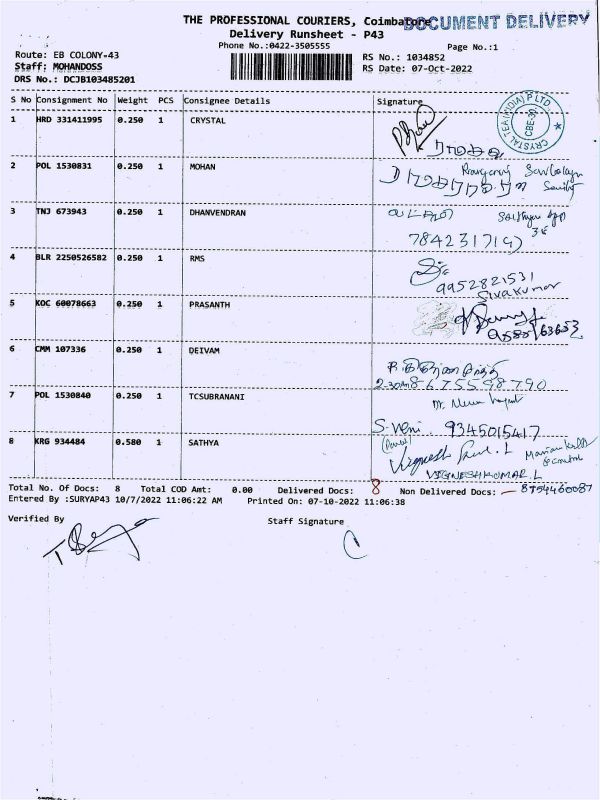 THE PROFESSIONAL COURIERS, Coimbatore
DOCUMENT DELIVERY
Delivery Runsheet - P43
Phone No.:0422-3505555
Page No.:1
Route: EB COLONY-43
RS No.: 1034852
Staff: MOHANDOSS
RS Date: 07-Oct-2022
DRS No.: DCJB103485201
S No Consignment No Weight PCS Consignee Details Signature
1 HRD 331411995 0.250 1 CRYSTAL
CRYSTAL TEA (INDIA) P LTD.
CBE-30
2 POL 1530831 0.250 1 MOHAN
3 TNJ 673943 0.250 1 DHANVENDRAN
4 BLR 2250526582 0.250 1 RMS
9952821531
Sivakumar
5 KOC 60078663 0.250 1 PRASANTH
6 CMM 107336 0.250 1 DEIVAM
8675598790
7 POL 1530840 0.250 1 TCSUBRANANI
S-Veni. 9345015417
8 KRG 934484 0.580 1 SATHYA
VIGNESHKUMAR.L
8754460087
Total No. Of Docs: 8 Total COD Amt: 0.00 Delivered Docs: 8 Non Delivered Docs: -
Entered By :SURYAP43 10/7/2022 11:06:22 AM Printed On: 07-10-2022 11:06:38
Verified By Staff Signature